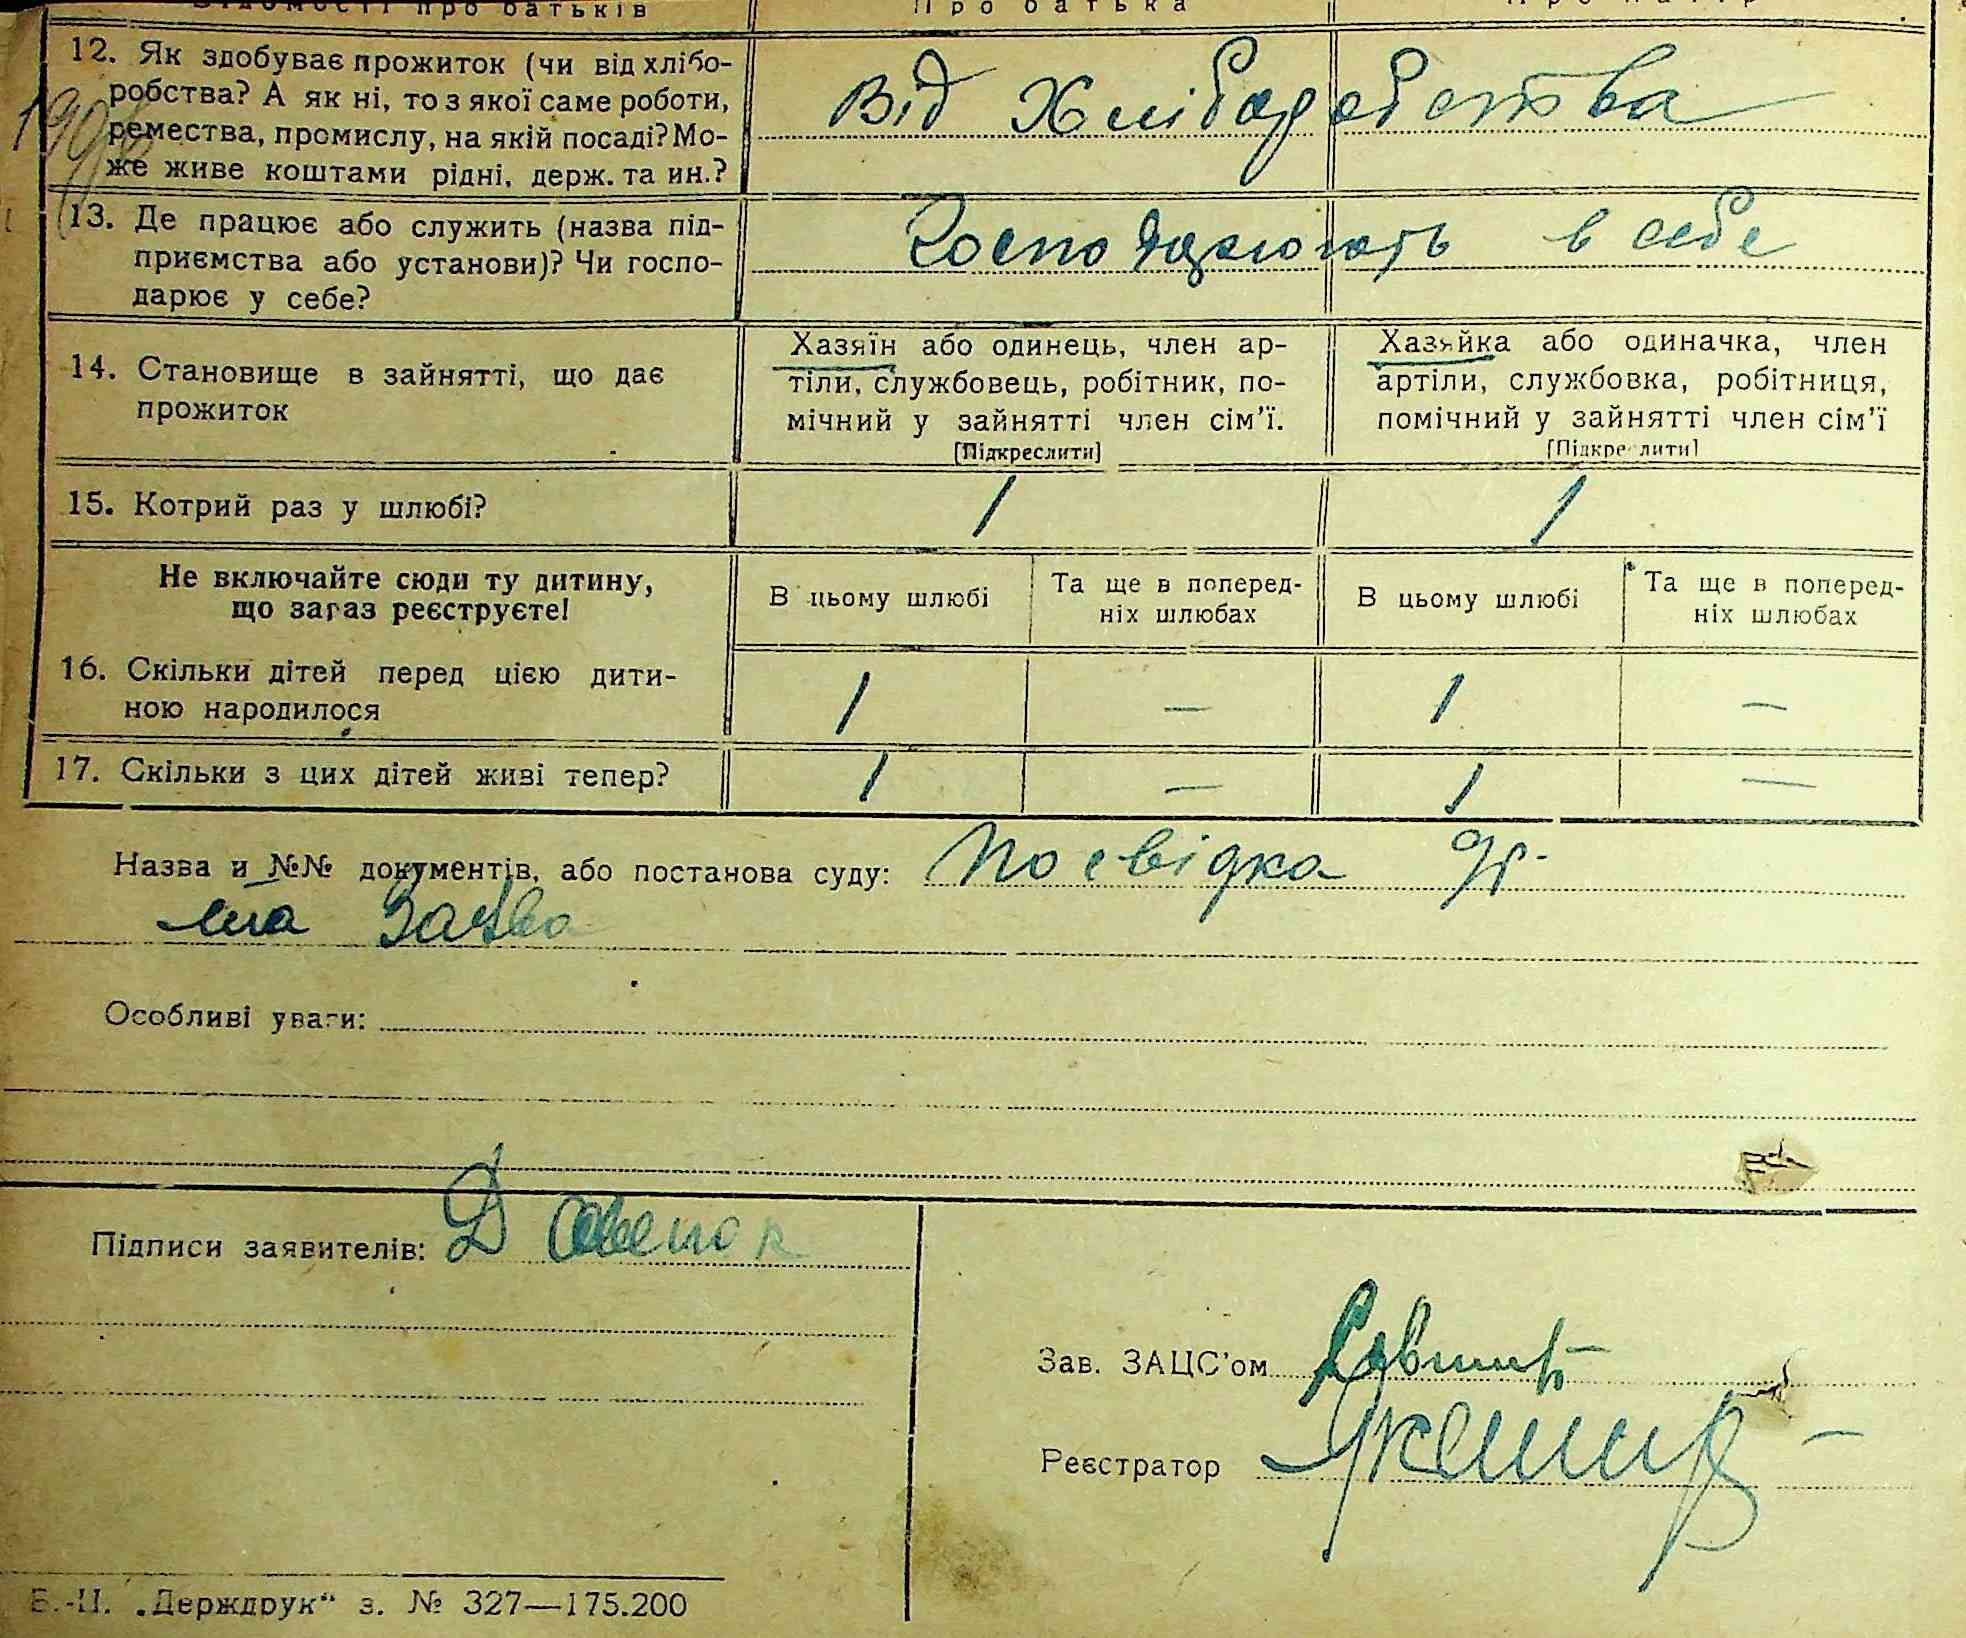 Відомості про батьків Про батька Про матір
12. Як здобуває прожиток (чи від хлібо-
робства? А як ні, то з якої саме роботи,
ремества, промислу, на якій посаді? Мо-
же живе коштами рідні, держ. та ин.?
Від Хліборобства
13. Де працює або служить (назва під-
приємства або установи)? Чи госпо-
дарює у себе?
Господарюють в себе
14. Становище в зайнятті, що дає
прожиток
Хазяїн або одинець, член ар-
тіли, службовець, робітник, по-
мічний у зайнятті член сім'ї.
[Підкреслити]
Хазяйка або одиначка, член
артіли, службовка, робітниця,
помічний у зайнятті член сім'ї
[Підкреслити]
15. Котрий раз у шлюбі? 1 1
Не включайте сюди ту дитину,
що зараз реєструєте!
В цьому шлюбі
Та ще в поперед-
ніх шлюбах
В цьому шлюбі
Та ще в поперед-
ніх шлюбах
16. Скільки дітей перед цією дити-
ною народилося
1 — 1 —
17. Скільки з цих дітей живі тепер? 1 — 1 —
Назва и №№ документів, або постанова суду: Посвідка
Особливі уваги:
Підписи заявителів:
Зав. ЗАЦС'ом
Реєстратор
Б.-Ц. „Держдрук“ з. № 327—175.200